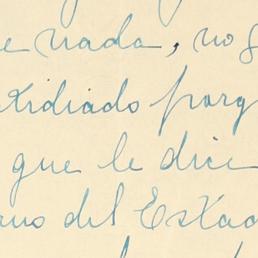 e nada, no
xidiado porq
que le dice
rno del Estad